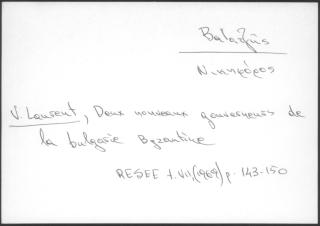 Νικηφόρος
V. Laurent, Deux nouveaux gouverneurs de
la bulgarie Byzantine
RESEE t. VII, (1969) p. 143-150